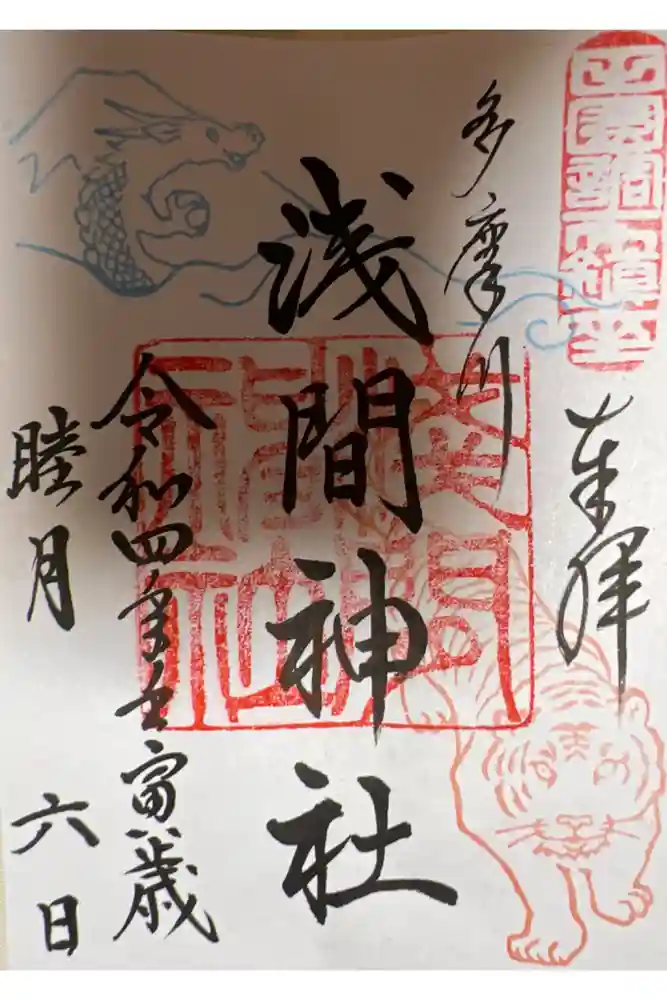 奉拝
多摩川
浅間神社
令和四年壬寅歳
睦月 六日